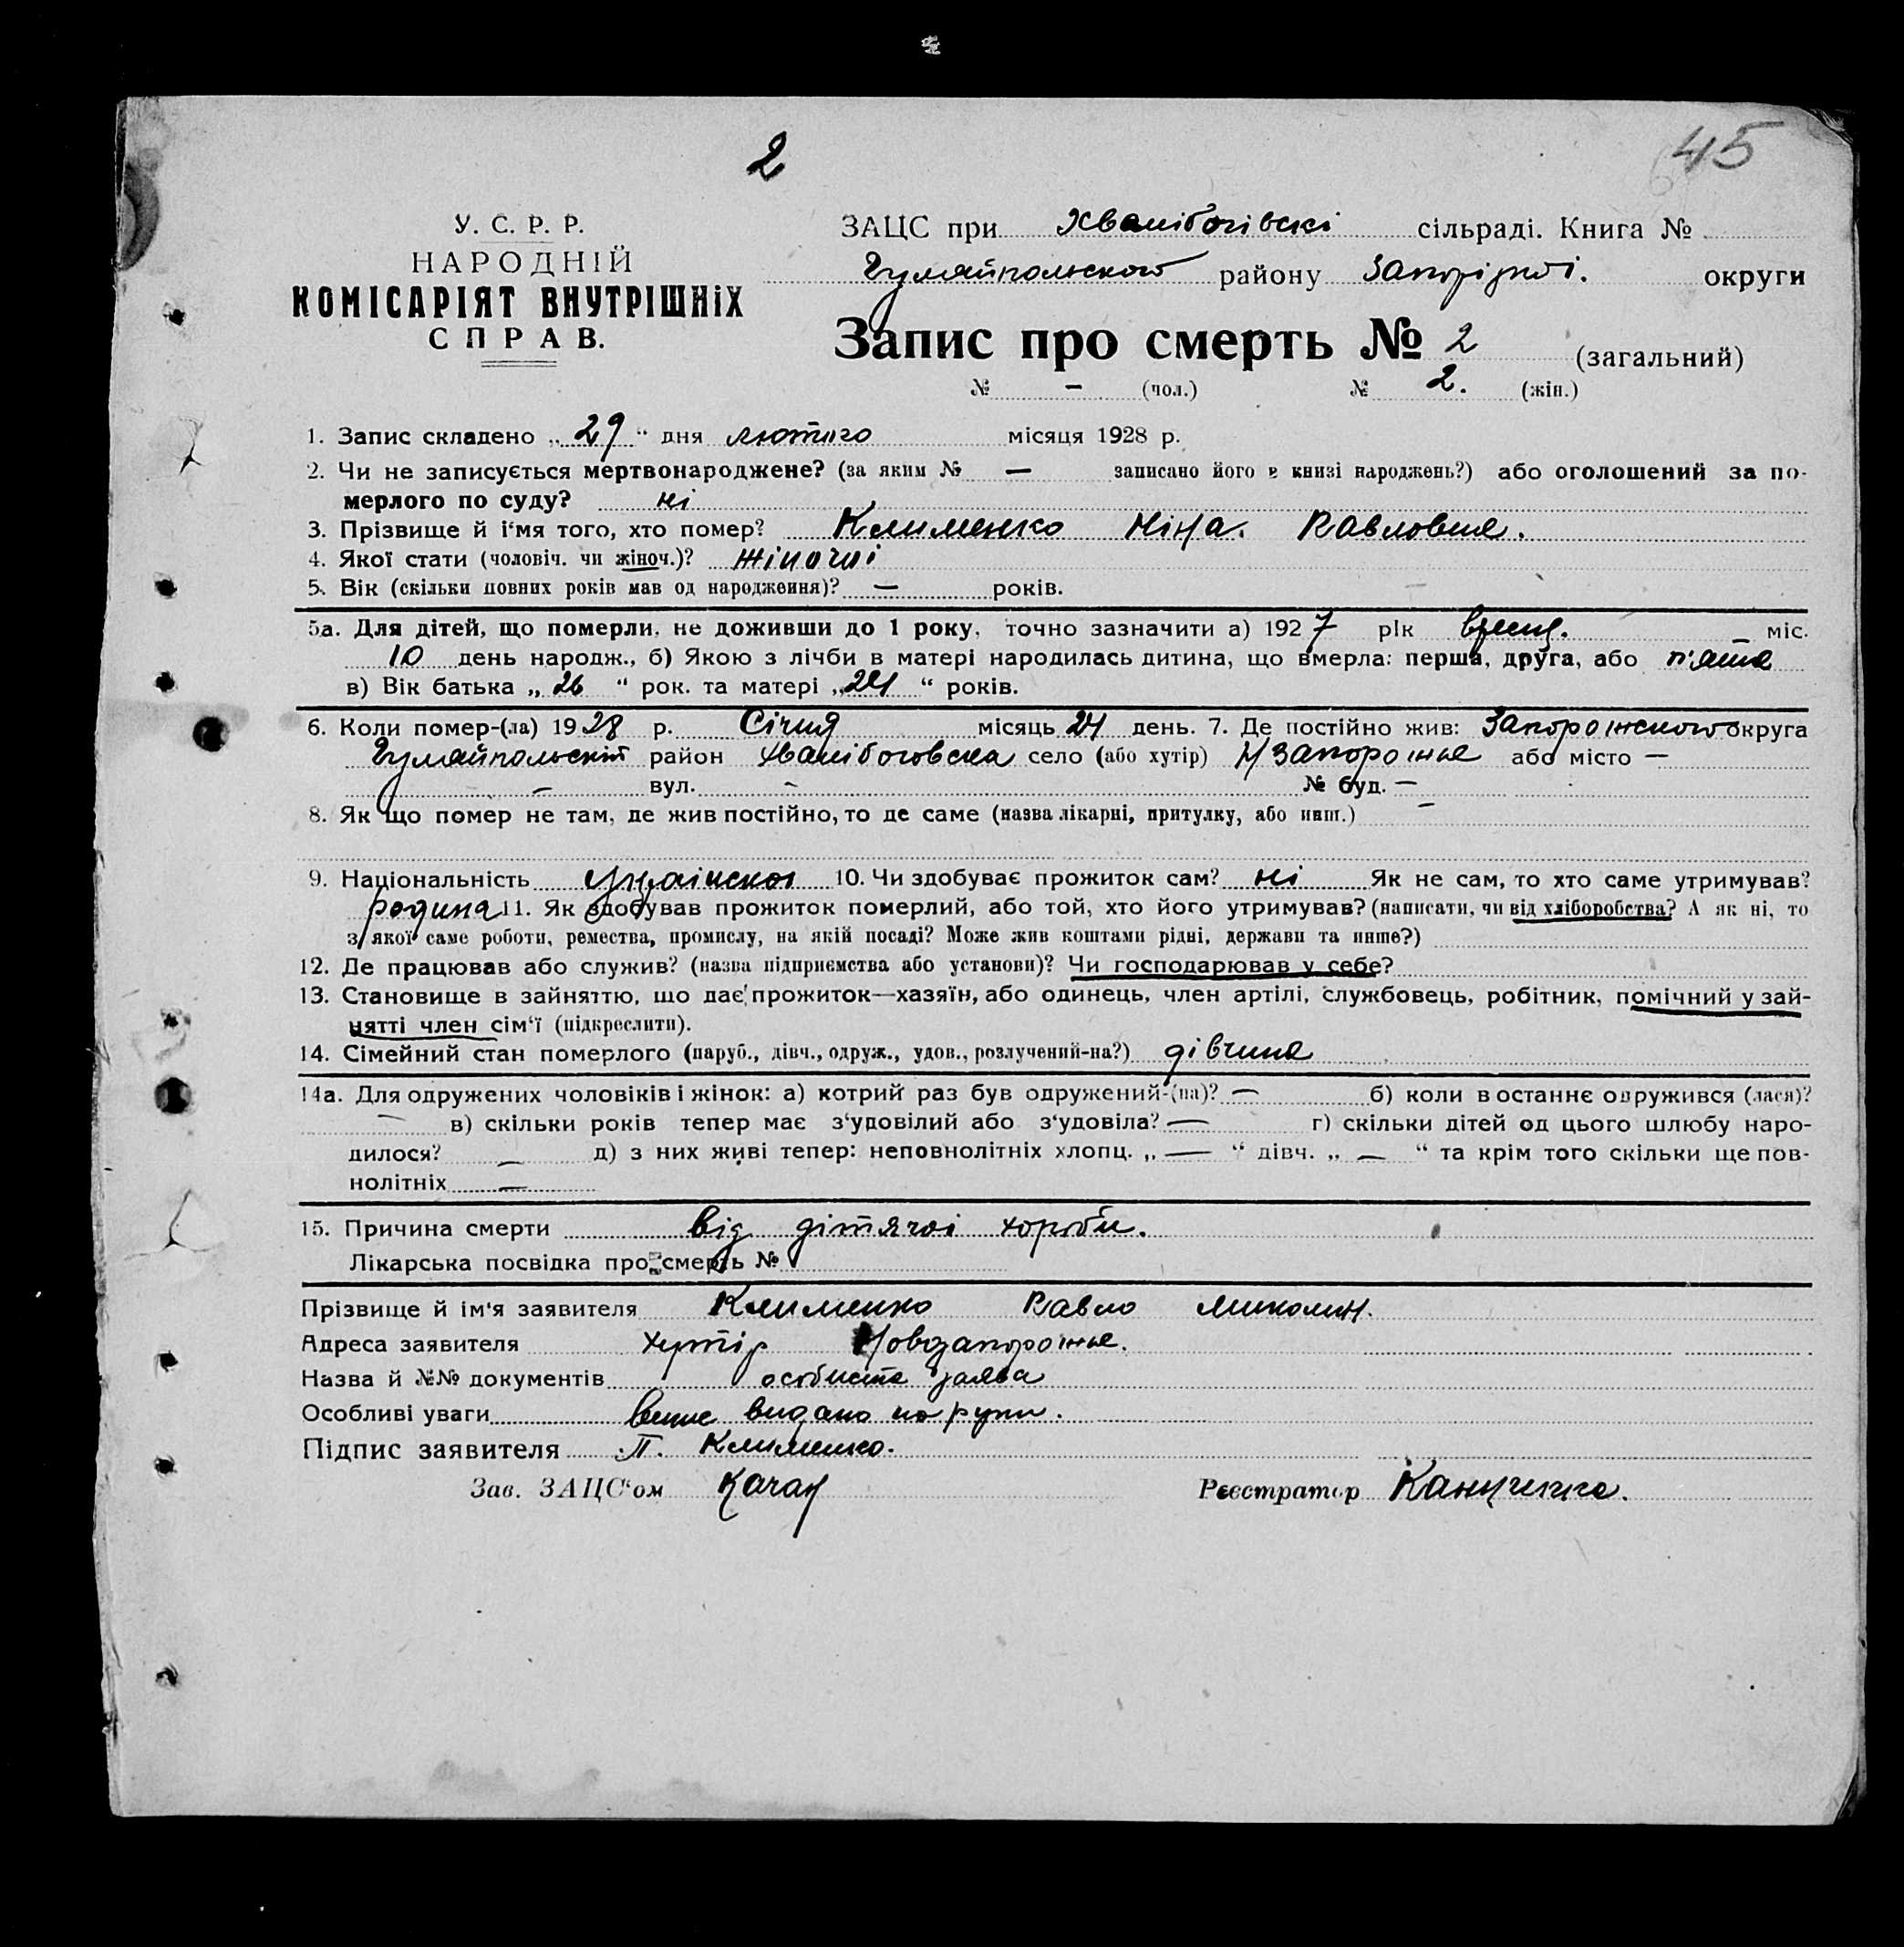 2
45
У. С. Р. Р.
НАРОДНІЙ
КОМІСАРІЯТ ВНУТРІШНІХ
СПРАВ.
ЗАЦС при сільраді. Книга №
Гуляйпольского району округи
Запис про смерть № 2 (загальний)
№ – (чол.) № 2. (жін.)
1. Запис складено „ 29 “ дня лютого місяця 1928 р.
2. Чи не записується мертвонароджене? (за яким № — записано його в книзі народжень?) або оголошений за по-
мерлого по суду? ні
3. Прізвище й і'мя того, хто помер? Клименко Ніна. Павловна.
4. Якої стати (чоловіч. чи жіноч.)? жіночої
5. Вік (скільки повних років мав од народження)? — років.
5а. Для дітей, що померли, не доживши до 1 року, точно зазначити а) 1927 рік міс.
10 день народж., б) Якою з лічби в матері народилась дитина, що вмерла: перша, друга, або п'ята
в) Вік батька „ 26 “ рок. та матері „ 24 “ років.
6. Коли помер-(ла) 1928 р. Січня місяць 24 день. 7. Де постійно жив: Запорожского округа
Гуляйпольский район село (або хутір) Н/Запорожье або місто —
– вул. – № буд. —
8. Як що помер не там, де жив постійно, то де саме (назва лікарні, притулку, або инш.) –
9. Національність 10. Чи здобуває прожиток сам? ні Як не сам, то хто саме утримував?
родина 11. Як здобував прожиток померлий, або той, хто його утримував? (написати, чи від хліборобства? А як ні, то
з якої саме роботи, ремества, промислу, на якій посаді? Може жив коштами рідні, держави та инше?)
12. Де працював або служив? (назва підприємства або установи)? Чи господарював у себе?
13. Становище в зайняттю, що дає прожиток—хазяїн, або одинець, член артілі, службовець, робітник, помічний у зай-
нятті член сім'ї (підкреслити).
14. Сімейний стан померлого (паруб., дівч., одруж., удов., розлучений-на?) дівчина
14а. Для одружених чоловіків і жінок: а) котрий раз був одружений-(на)? — б) коли востаннє одружився (лася)?
— в) скільки років тепер має з'удовілий або з'удовіла? — г) скільки дітей од цього шлюбу наро-
дилося? — д) з них живі тепер: неповнолітніх хлопц. „ — “ дівч. „ — “ та крім того скільки ще пов-
нолітніх —
15. Причина смерти від дітячої хороби.
Лікарська посвідка про смерть №
Прізвище й ім'я заявителя Клименко Павло Миколин.
Адреса заявителя хутір Новозапорожье.
Назва й №№ документів особиста заява
Особливі уваги видано на руки.
Підпис заявителя П. Клименко.
Зав. ЗАЦС'ом Качан Реєстратор